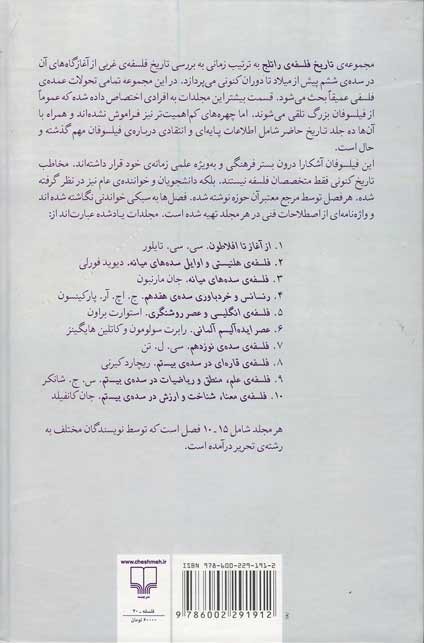 مجموعه‌ی تاریخ فلسفه‌ی راتلج به ترتیب زمانی به بررسی تاریخ فلسفه‌ی غربی از آغازگاه‌های آن
در سده‌ی ششم پیش از میلاد تا دوران کنونی می‌پردازد. در این مجموعه تمامی تحولات عمده‌ی
فلسفی عمیقاً بحث می‌شود. قسمت بیشتر این مجلدات به افرادی اختصاص داده شده که عموماً
از فیلسوفان بزرگ تلقی می‌شوند. اما چهره‌های کم‌اهمیت‌تر نیز فراموش نشده‌اند و همراه با
آن‌ها ده جلد تاریخ حاضر شامل اطلاعات پایه‌ای و انتقادی درباره‌ی فیلسوفان مهم گذشته و
حال است.
این فیلسوفان آشکارا درون بستر فرهنگی و به‌ویژه علمی زمانه‌ی خود قرار داشته‌اند. مخاطب
تاریخ کنونی فقط متخصصان فلسفه نیستند. بلکه دانشجویان و خواننده‌ی عام نیز در نظر گرفته
شده. هر فصل توسط مرجع معتبر آن حوزه نوشته شده. فصل‌ها به سبکی خواندنی نگاشته شده اند
و واژه‌نامه‌ای از اصطلاحات فنی در هر مجلد تهیه شده است. مجلدات یادشده عبارت‌اند از:
۱. از آغاز تا افلاطون. سی. سی. تایلور
۲. فلسفه‌ی هلنیستی و اوایل سده‌های میانه. دیوید فورلی
۳. فلسفه‌ی سده‌های میانه. جان مارنبون
۴. رنسانس و خردباوری سده‌ی هفدهم. ج. اچ. آر. پارکینسون
۵. فلسفه‌ی انگلیسی و عصر روشنگری. استوارت براون
۶. عصر ایده‌آلیسم آلمانی. رابرت سولومون و کاتلین هایگینز
۷. فلسفه‌ی سده‌ی نوزدهم. سی. ل. تن
۸. فلسفه‌ی قاره‌ای در سده‌ی بیستم. ریچارد کیرنی
۹. فلسفه‌ی علم، منطق و ریاضیات در سده‌ی بیستم. س. ج. شانکر
۱۰. فلسفه‌ی معنا، شناخت و ارزش در سده‌ی بیستم. جان کانفیلد
هر مجلد شامل ۱۵ ـ ۱۰ فصل است که توسط نویسندگان مختلف به
رشته‌ی تحریر درآمده است.
www.cheshmeh.ir
نشر چشمه
فلسفه ـ ۲۰
۶۰۰۰۰ تومان
ISBN 978-600-229-191-2
9 786002 291912